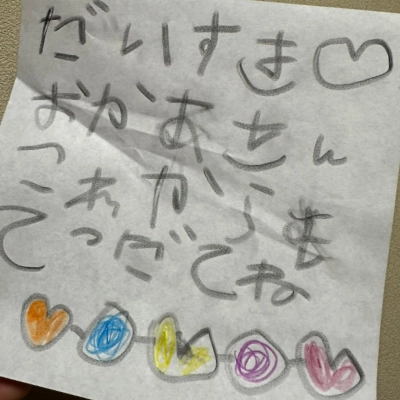 だいすき♡
おかあさん
これからも
てつだてね